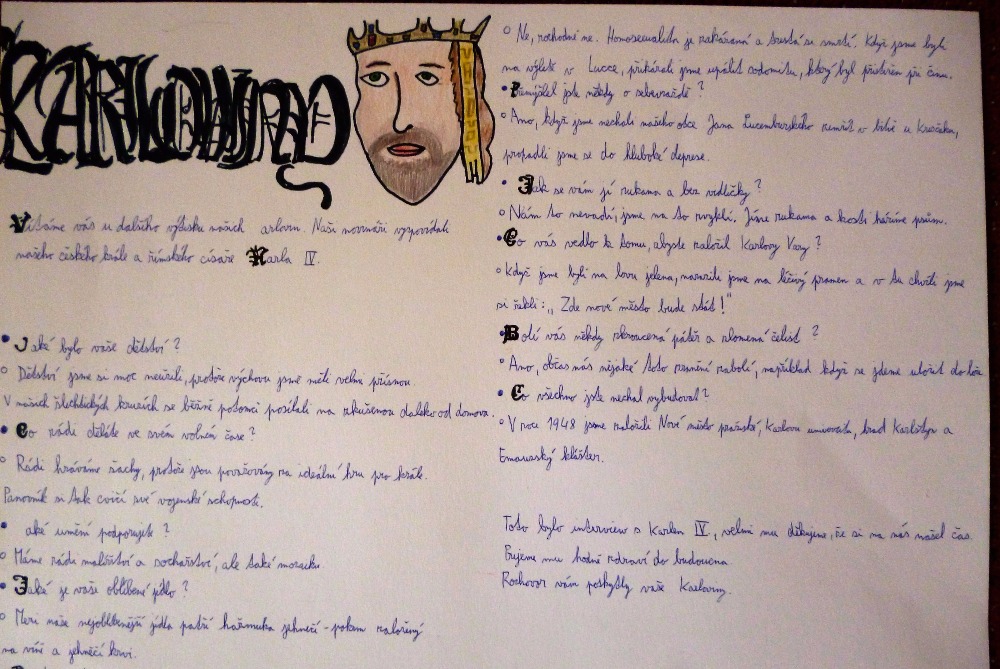 KARLOVINY
Vítáme vás u dalšího výtisku našich arlovin. Naši novináři vyzpovídali
našeho českého krále a římského císaře Karla IV.
• Jaké bylo vaše dětství?
○ Dětství jsme si moc neužili, protože výchovu jsme měli velmi přísnou.
V našich šlechtických kruzích se běžně potomci posílali na zkušenou daleko od domova.
• Co rádi děláte ve svém volném čase?
○ Rádi hráváme šachy, protože jsou považovány za ideální hru pro krále.
Panovník si tak cvičí své vojenské schopnosti.
• aké umění podporujete?
○ Máme rádi malířství a sochařství, ale také mozaiku.
• Jaké je vaše oblíbené jídlo?
○ Mezi naše nejoblíbenější jídla patří jehněčí - pokrm založený
na víně a jehněčí krvi.
○ Ne, rozhodně ne. Homosexualita je zakázaná a trestá se smrtí. Když jsme byli
na výletě v Lucce, přikázali jsme upálit sodomitu, který byl přistižen při činu.
• Přemýšlel jste někdy o sebevraždě?
○ Ano, když jsme nechali našeho otce Jana Lucemburského zemřít v bitvě u Kresčaku,
propadli jsme se do hluboké deprese.
• Jak se vám jí rukama a bez vidličky?
○ Nám to nevadí, jsme na to zvyklí. Jíme rukama a kosti házíme psům.
• Co vás vedlo k tomu, abyste založil Karlovy Vary?
○ Když jsme byli na lovu jelena, narazili jsme na léčivý pramen a v tu chvíli jsme
si řekli: „Zde nové město bude stát!"
• Bolí vás někdy zkroucená páteř a zlomená čelist?
○ Ano, občas nás nějaké toto zranění zabolí, například když se jdeme uložit do lože.
• Co všechno jste nechal vybudovat?
○ V roce 1948 jsme založili Nové město pražské, Karlovu univerzitu, hrad Karlštejn a
Emauzský klášter.
Toto bylo interview s Karlem IV., velmi mu děkujeme, že si na nás našel čas.
Přejeme mu hodně zdraví do budoucna.
Rozhovor vám poskytly vaše Karloviny.